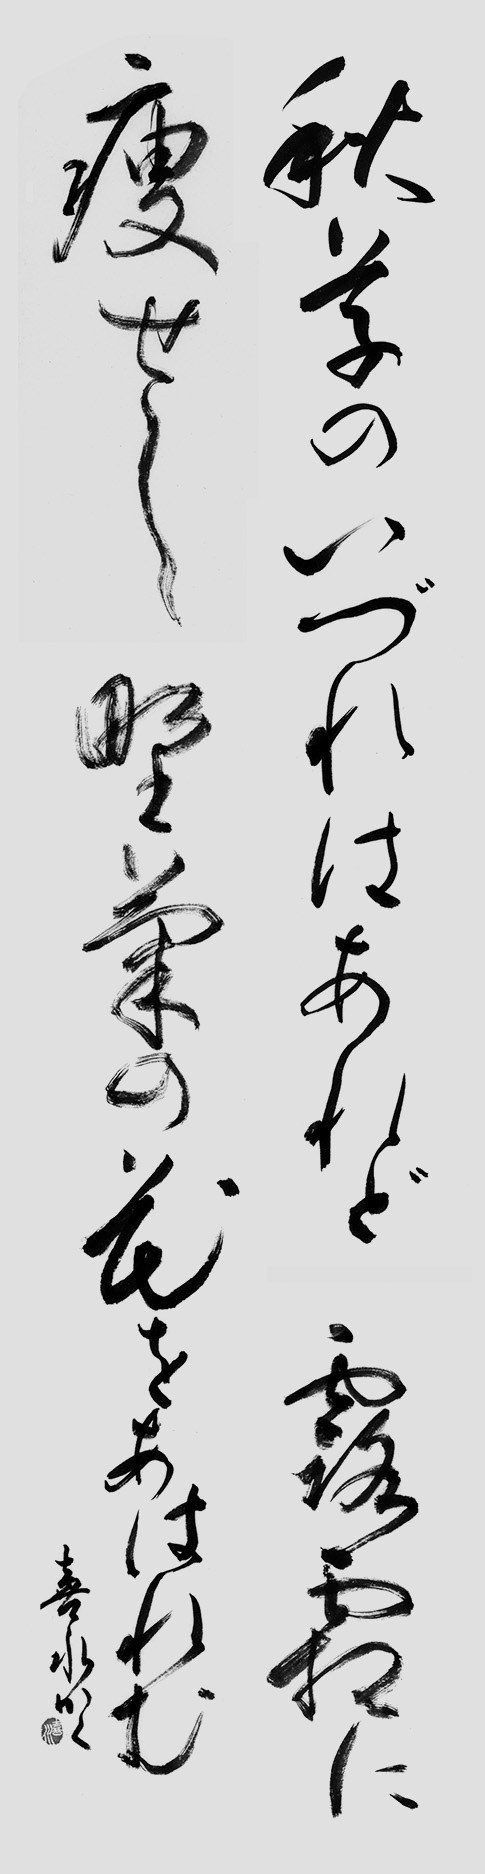 秋草のいづれはあれど露霜に
痩せし野菊の花をあはれむ
喜水り